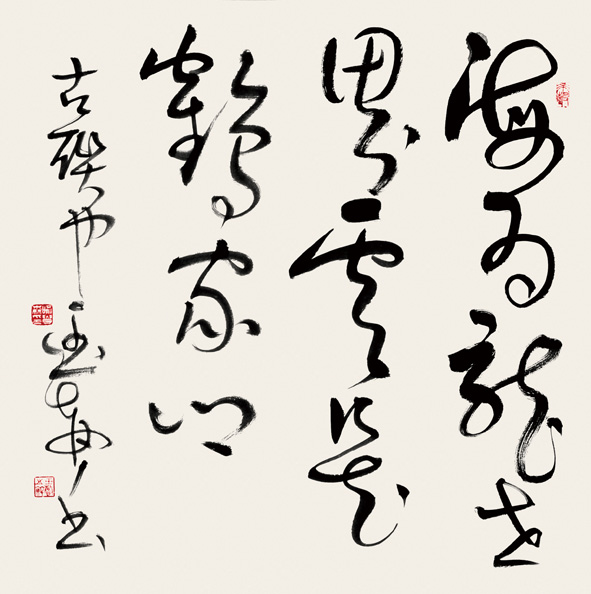 海為龍世
界雲是
鶴家鄉
古聯
書